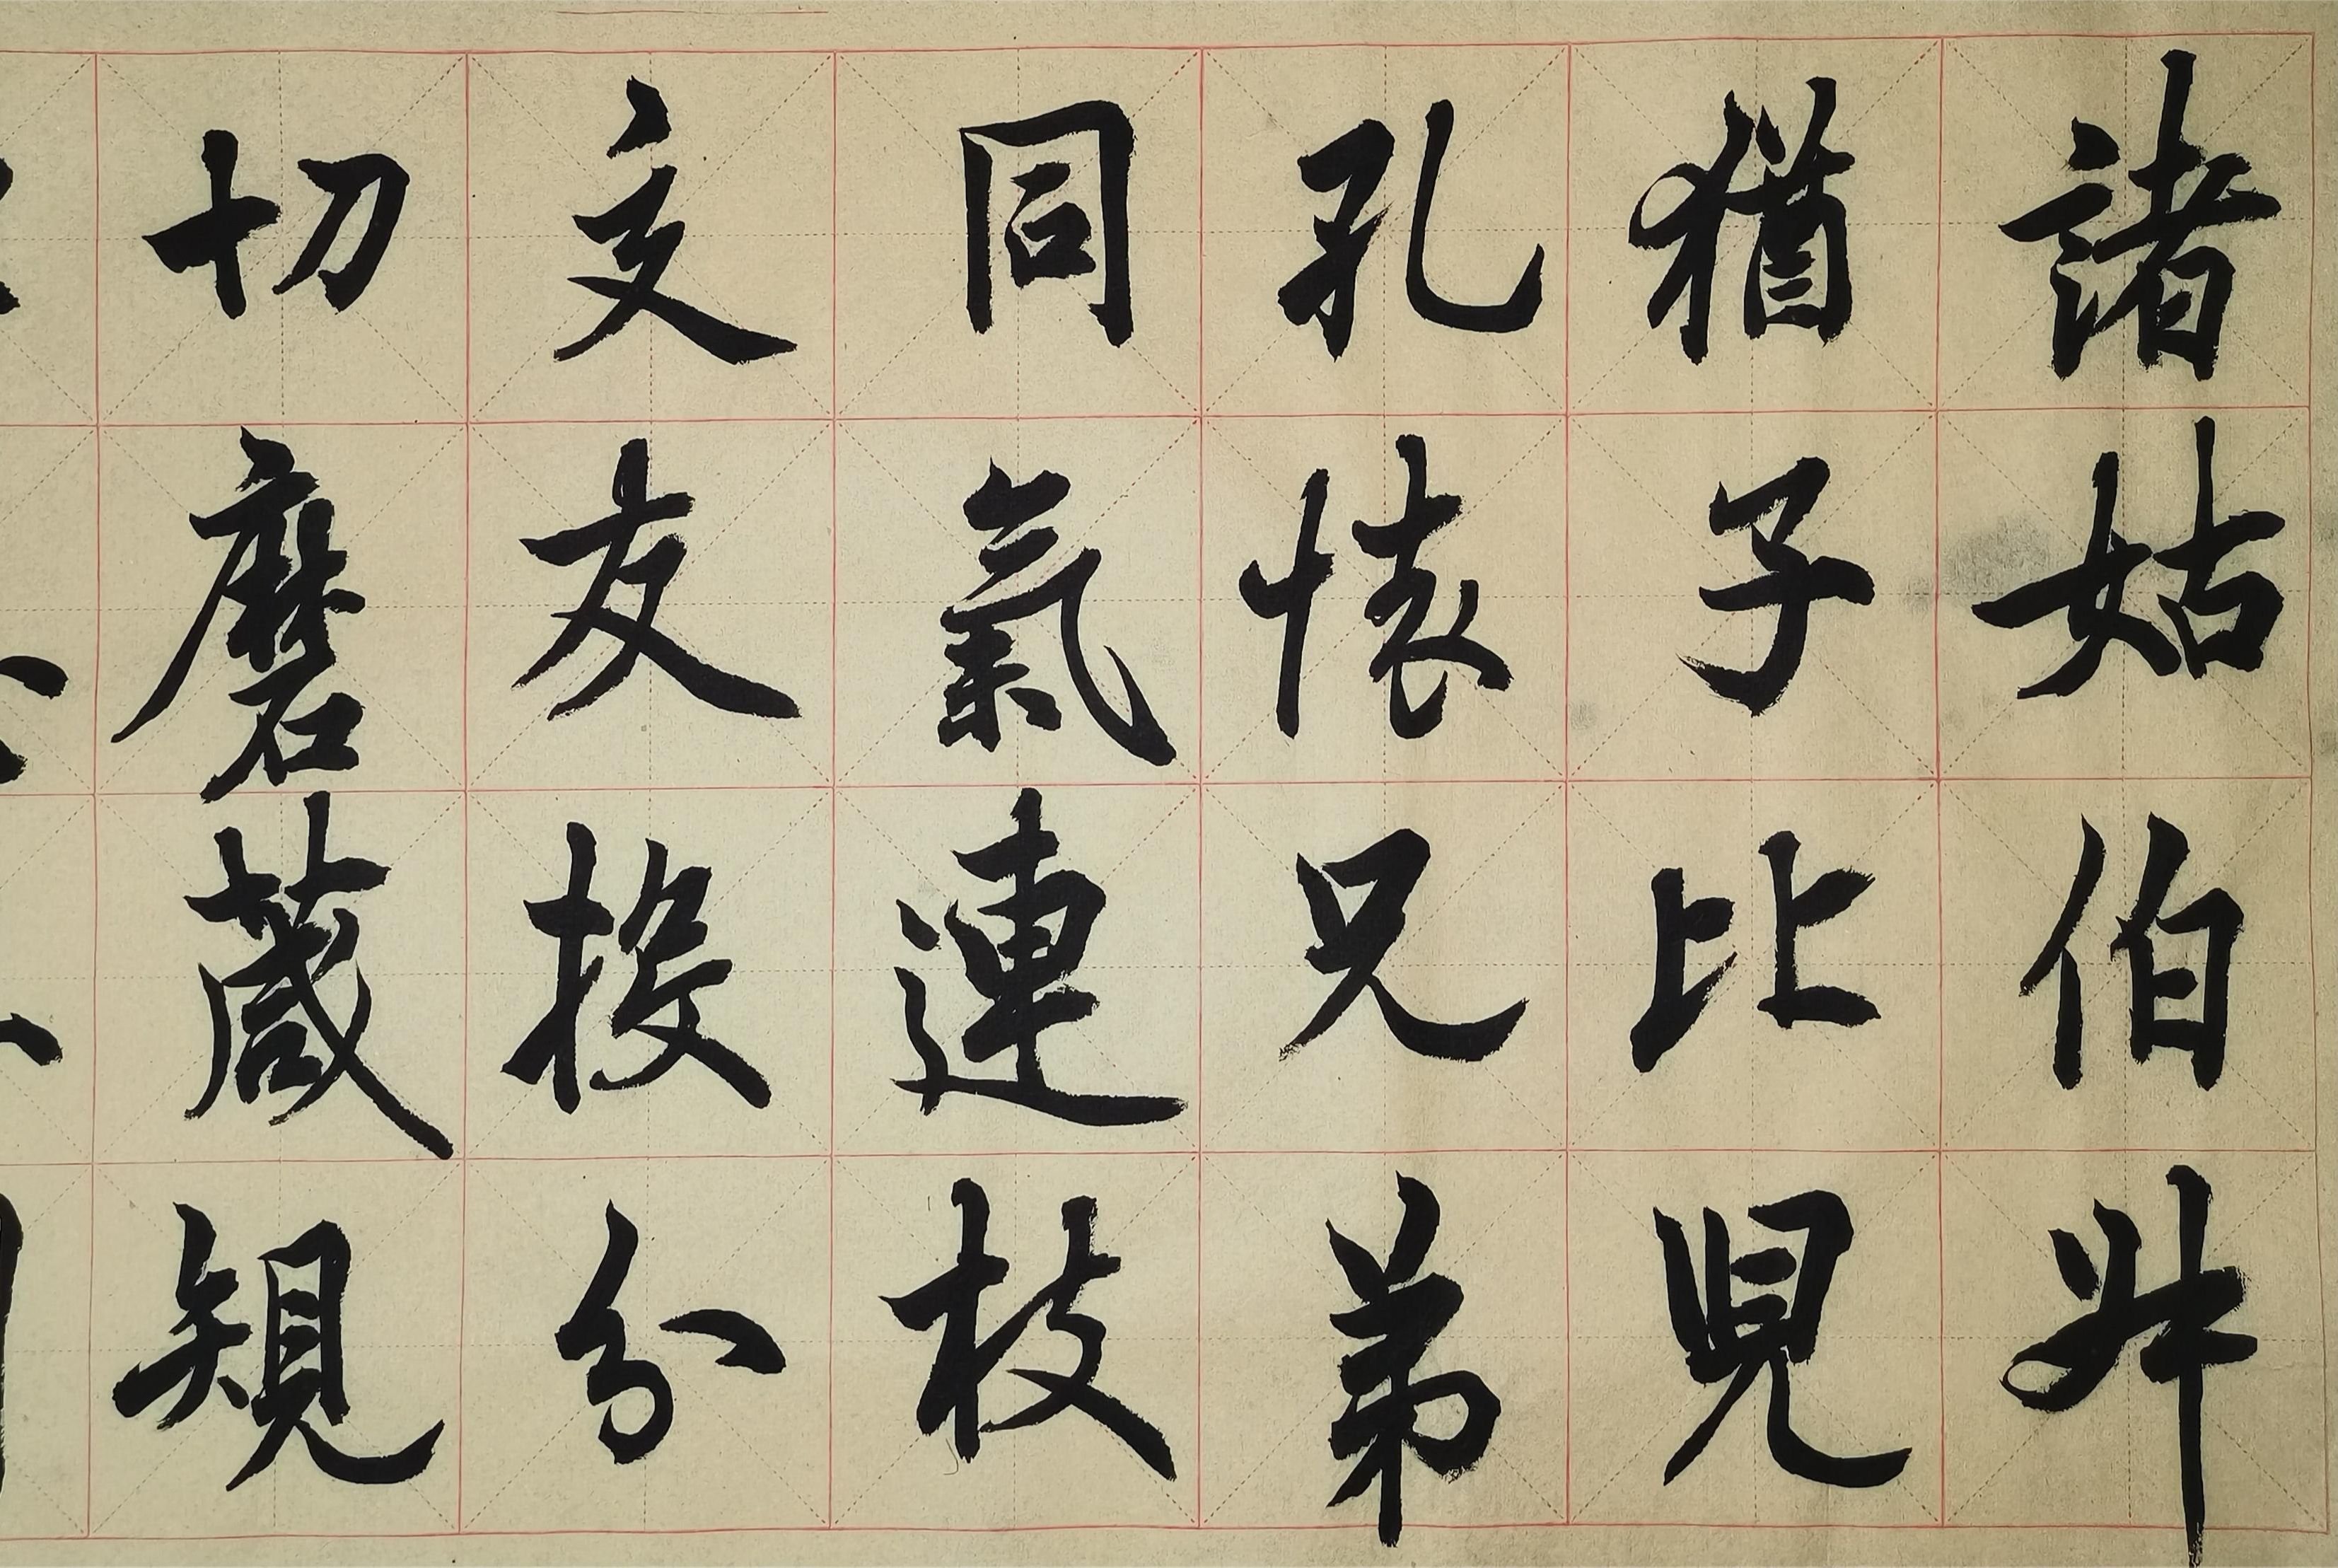 諸姑伯叔
猶子比兒
孔懷兄弟
同氣連枝
交友投分
切磨箴規